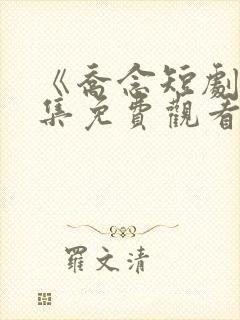 《喬念短劇
集免費觀看
羅文清